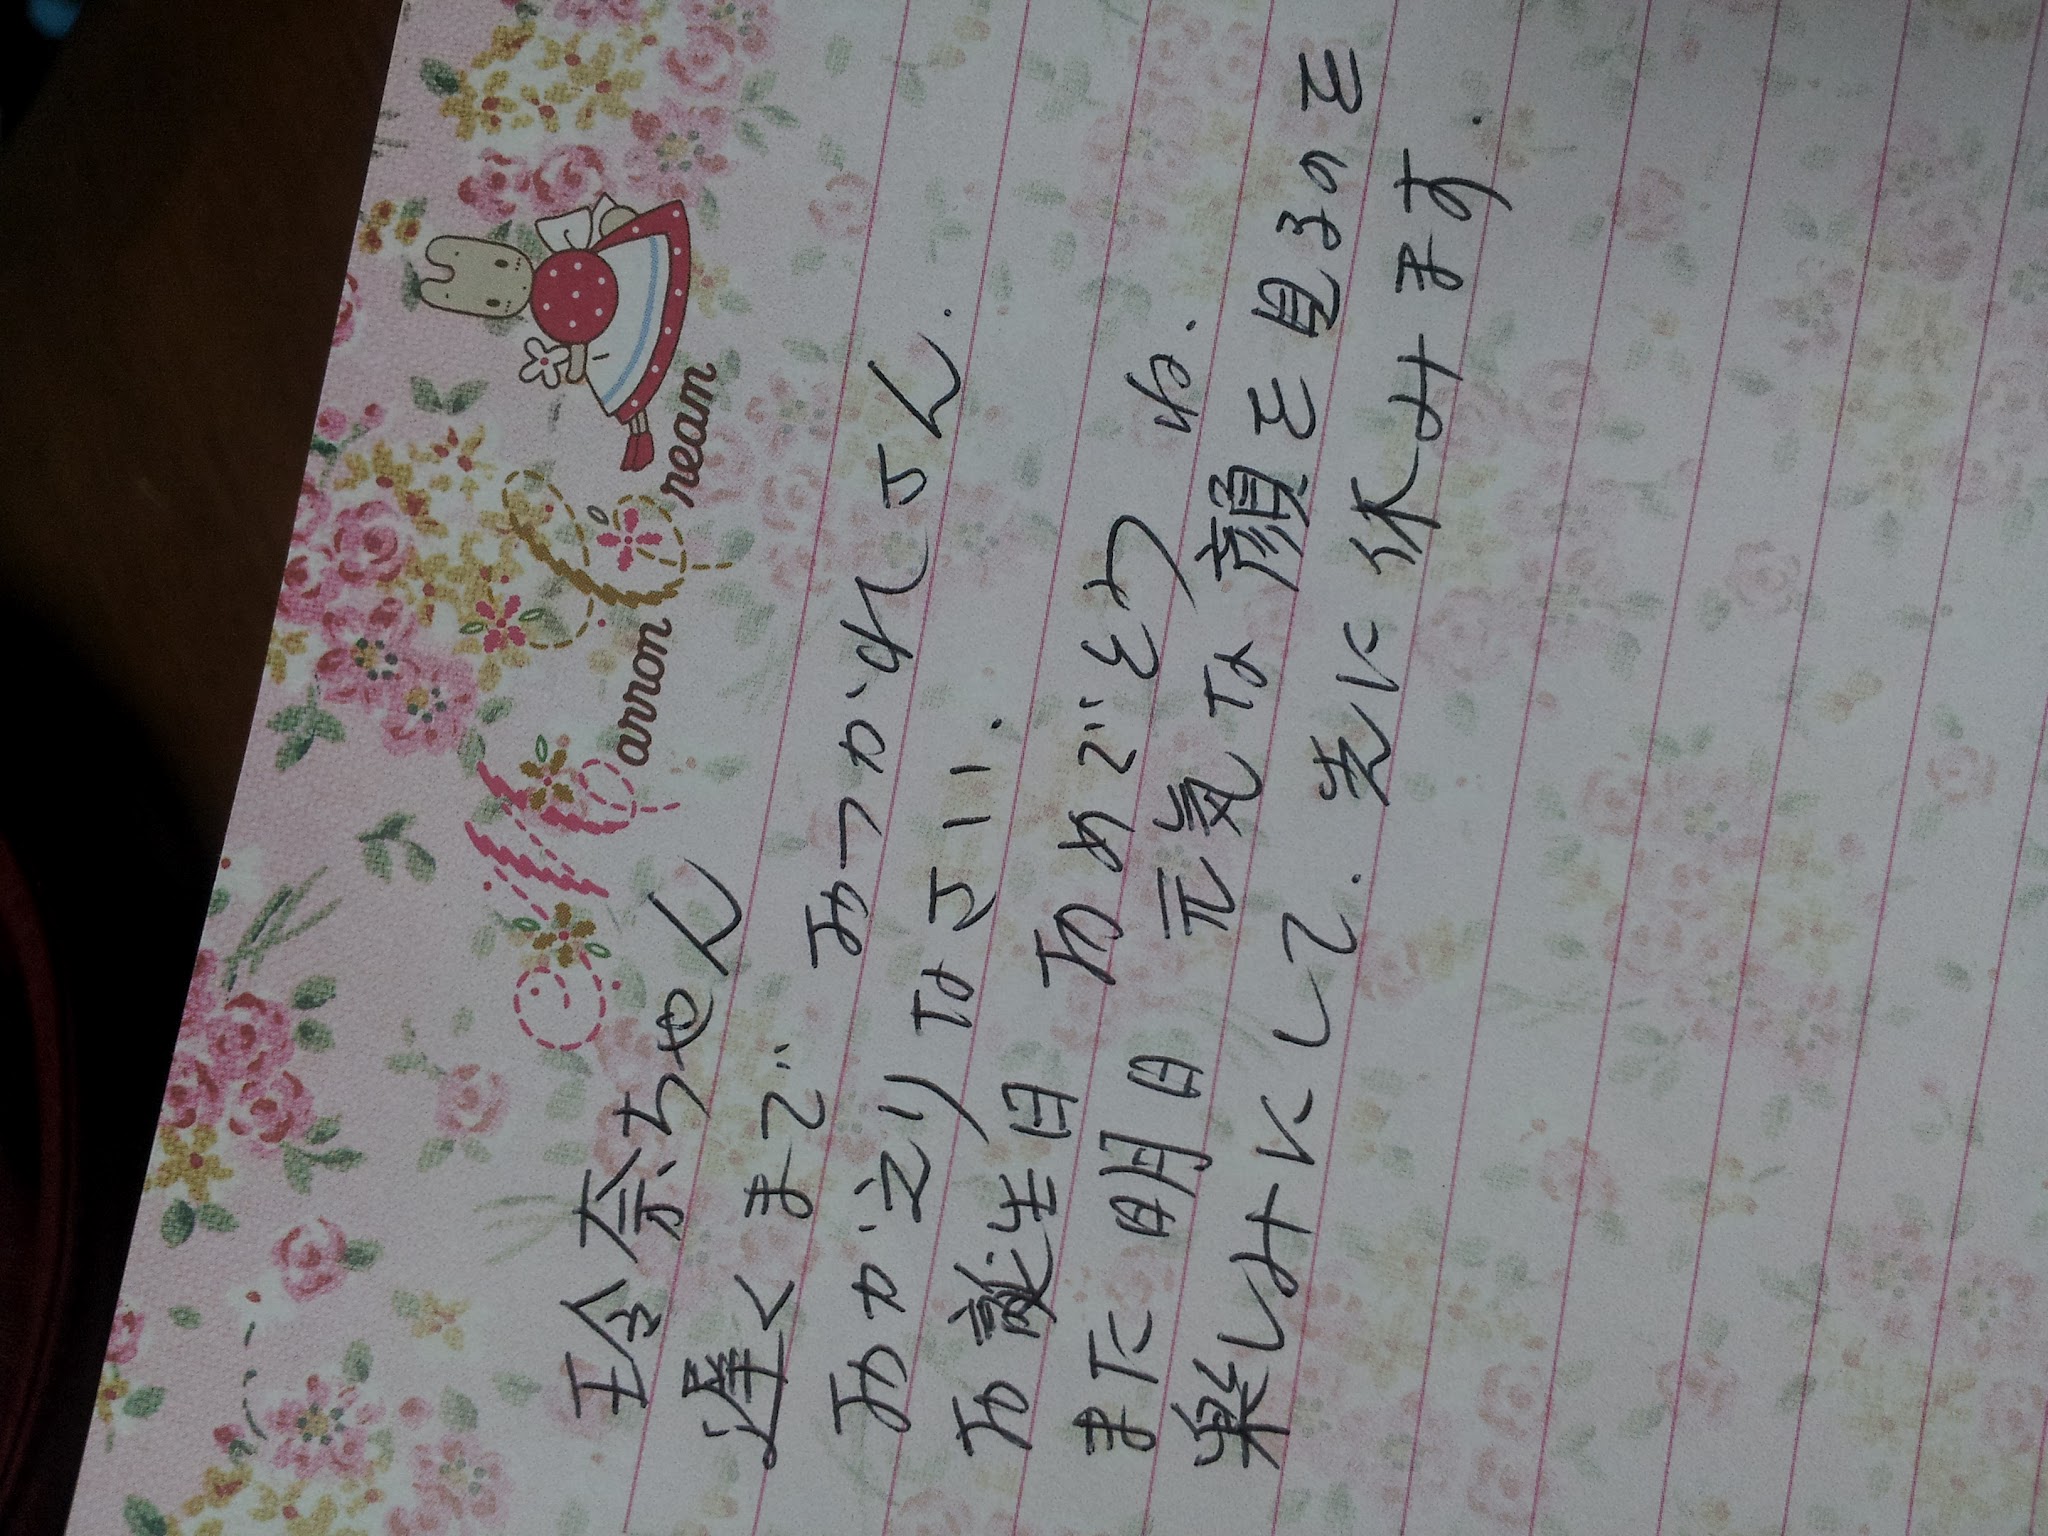 Marron Cream
玲奈ちゃん
遅くまで おつかれさん.
おかえりなさい.
お誕生日 おめでとう ね.
また明日 元気な顔を見るのを
楽しみにして. 先に休みます.